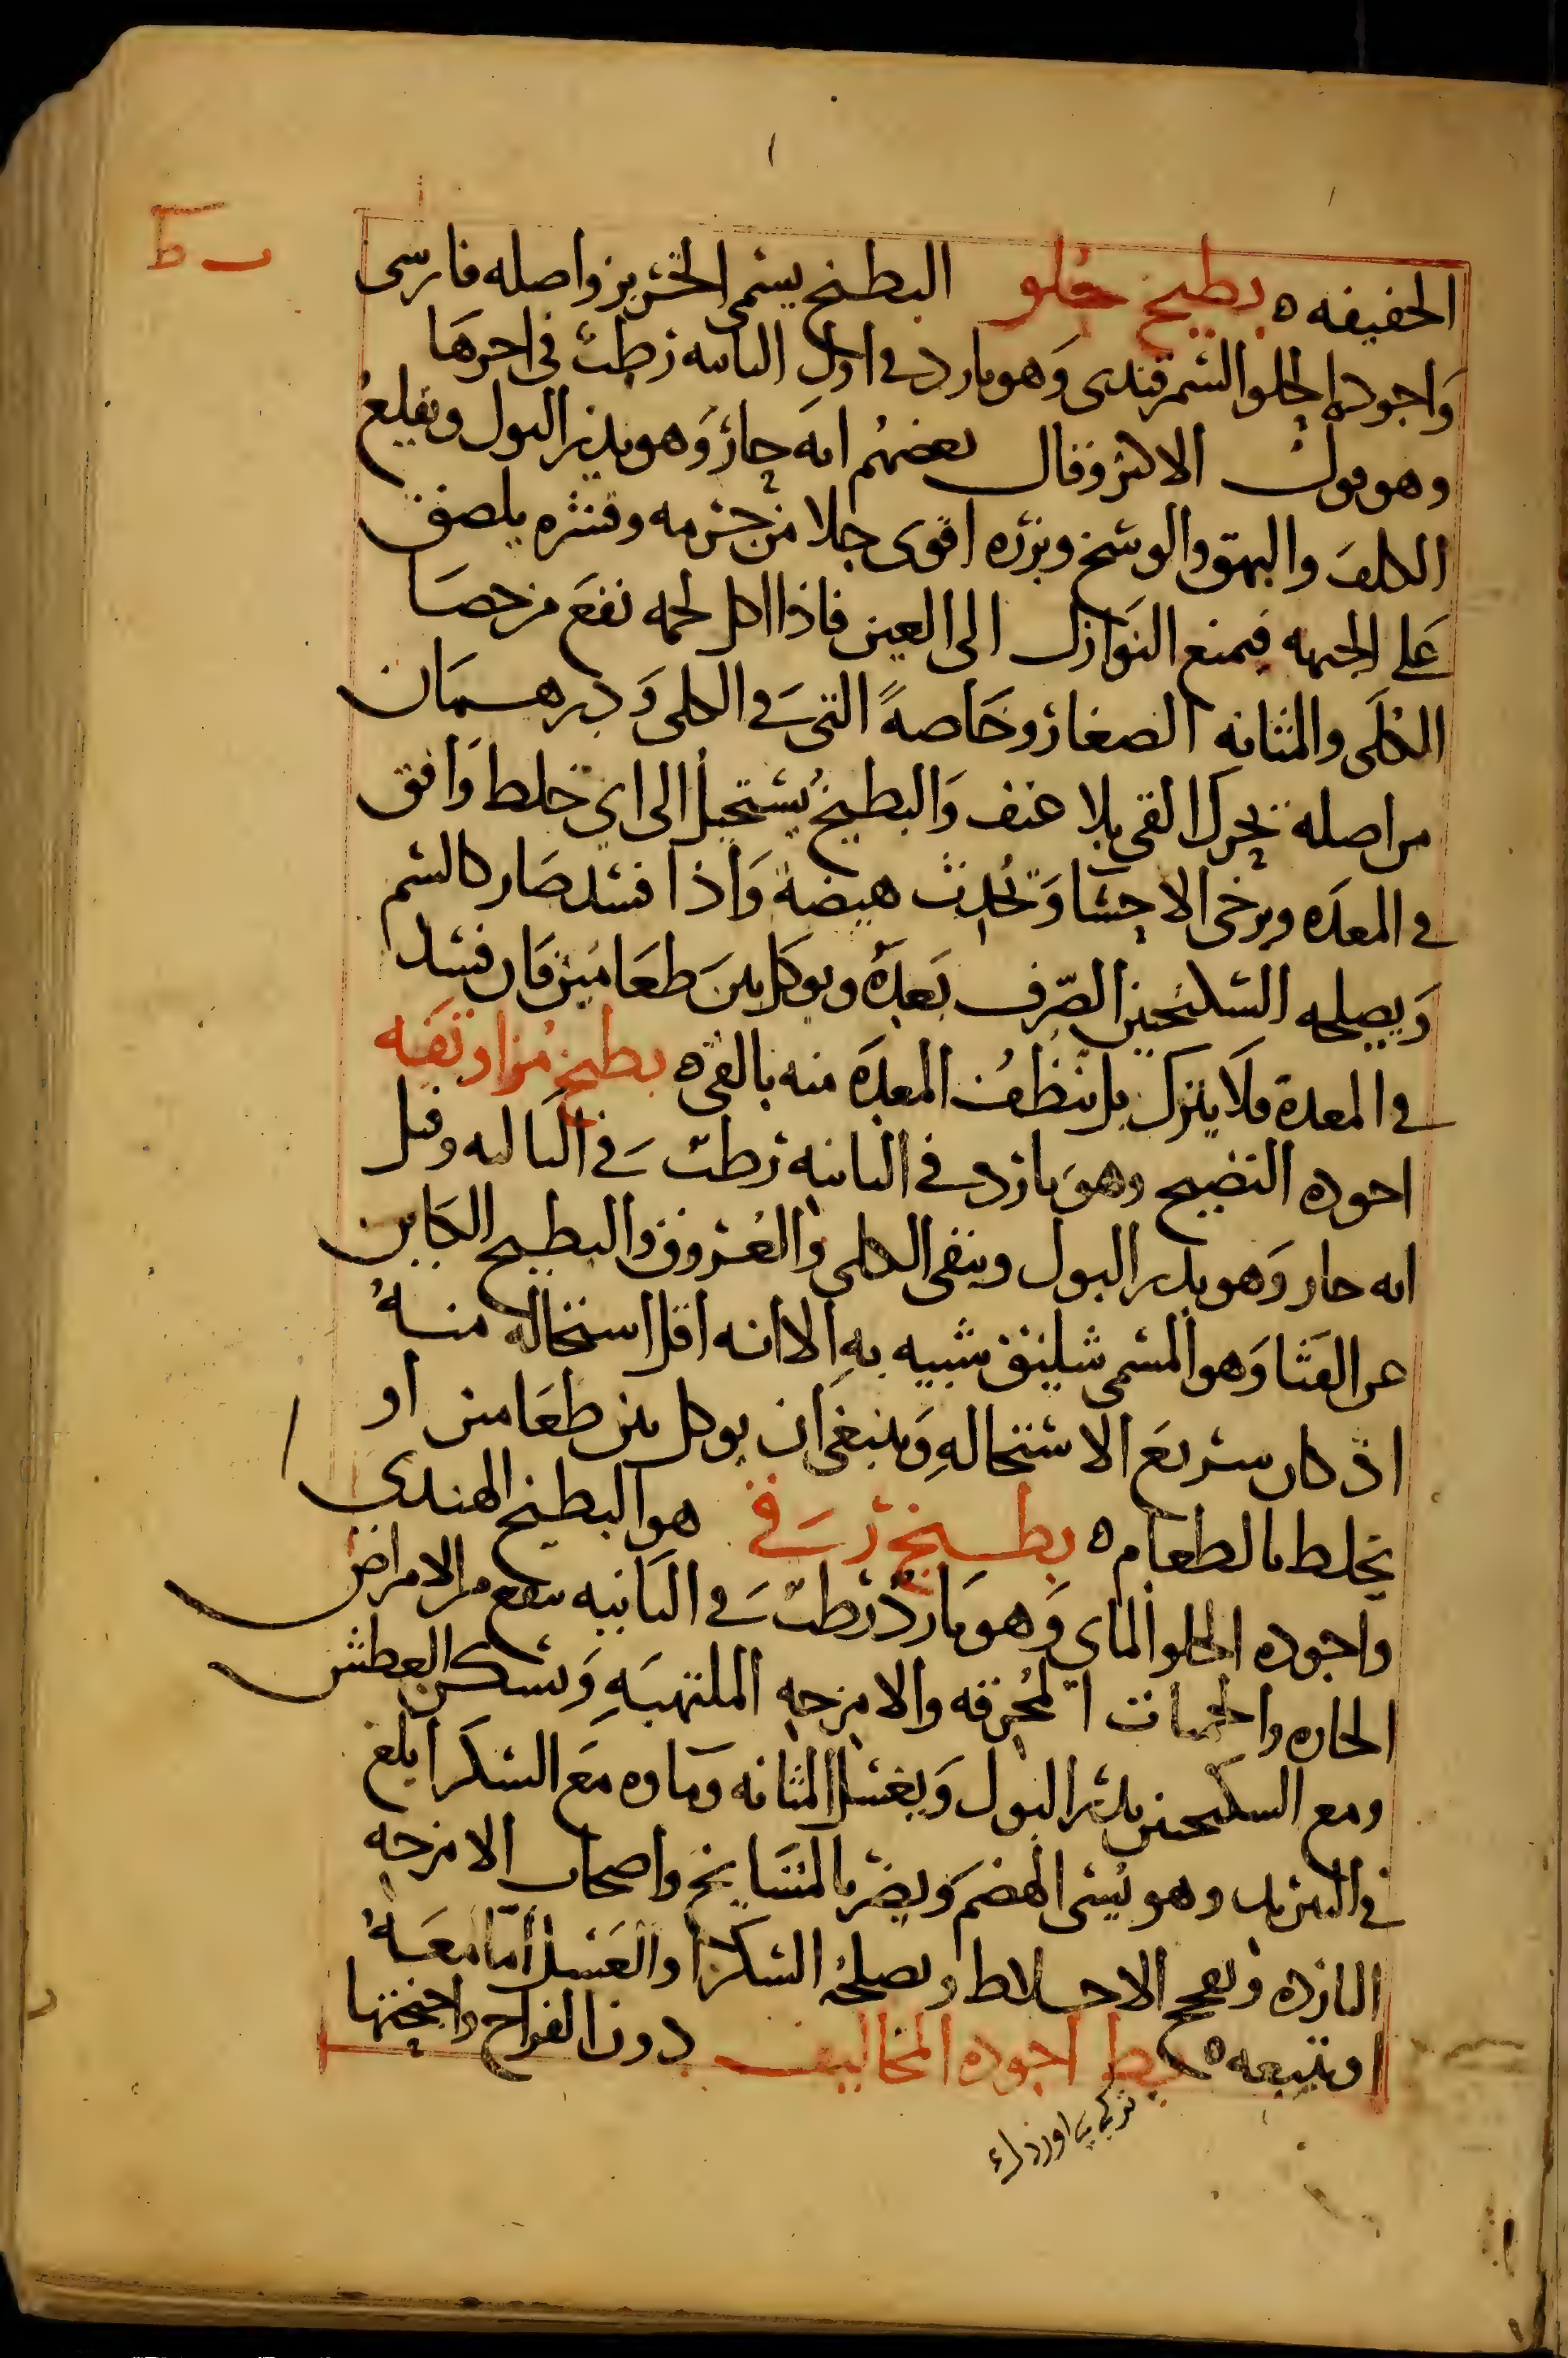 ب ط
الخفيفه ه بطيخ حلو البطيخ يسمى الخربز واصله فارسى
واجوده الحلو السمرقندى وهو بارد فى اول الثانيه رطب فى اخرها
وهو قول الاكثر وقال بعضهم انه حار وهو يدر البول ويقلع
الكلف والبهق والوسخ وبزره اقوى جلا من جرمه وقشره يلصق
على الجبهه فيمنع النوازل الى العين فاذا اكل لحمه نفع من حصا
الكلى والمثانه الصغار وخاصةً التى فى الكلى ودرهمان
من اصله تحرك القى بلا عنف والبطيخ يستحيل الى اي خلط وافق
فى المعده ويرخى الاحشا وتحدث هيضة واذا فسد صار كالسم
ويصلحه السكنجبين الصرف بعده ويوكل بين طعامين فان فسد
فى المعدة فلا يترك بل تنظف المعدة منه بالقى ه بطيخ مز او تفه
اجوده النضيج وهو بارد فى الثانيه رطب فى الثالثه وقيل
انه حار وهو يدر البول وينقى الكلى والعروق والبطيخ الكاين
عن القثا وهو المسمى شلينق شبيه به الا انه اقل استحالة منه
اذ كان سريع الاستحاله وينبغى ان يوكل بين طعامين او
يخلط بالطعام ه بطيخ رقى هو البطيخ الهندى
واجوده الحلو الماى وهو بارد رطب فى الثانيه ينفع من الامراض
الحاره والحميات المحرقه والامزجه الملتهبه ويسكن العطش
ومع السكنجبين يدر البول ويغسل المثانه وماوه مع السكر ابلغ
فى التبريد وهو يسى الهضم ويضر بالمشايخ واصحاب الامزجه
البارده ويفجج الاخلاط ويصلحه السكر او العسل اما معه
او يتبعه ه بط اجوده المخاليف دون الفراخ واجنحتها